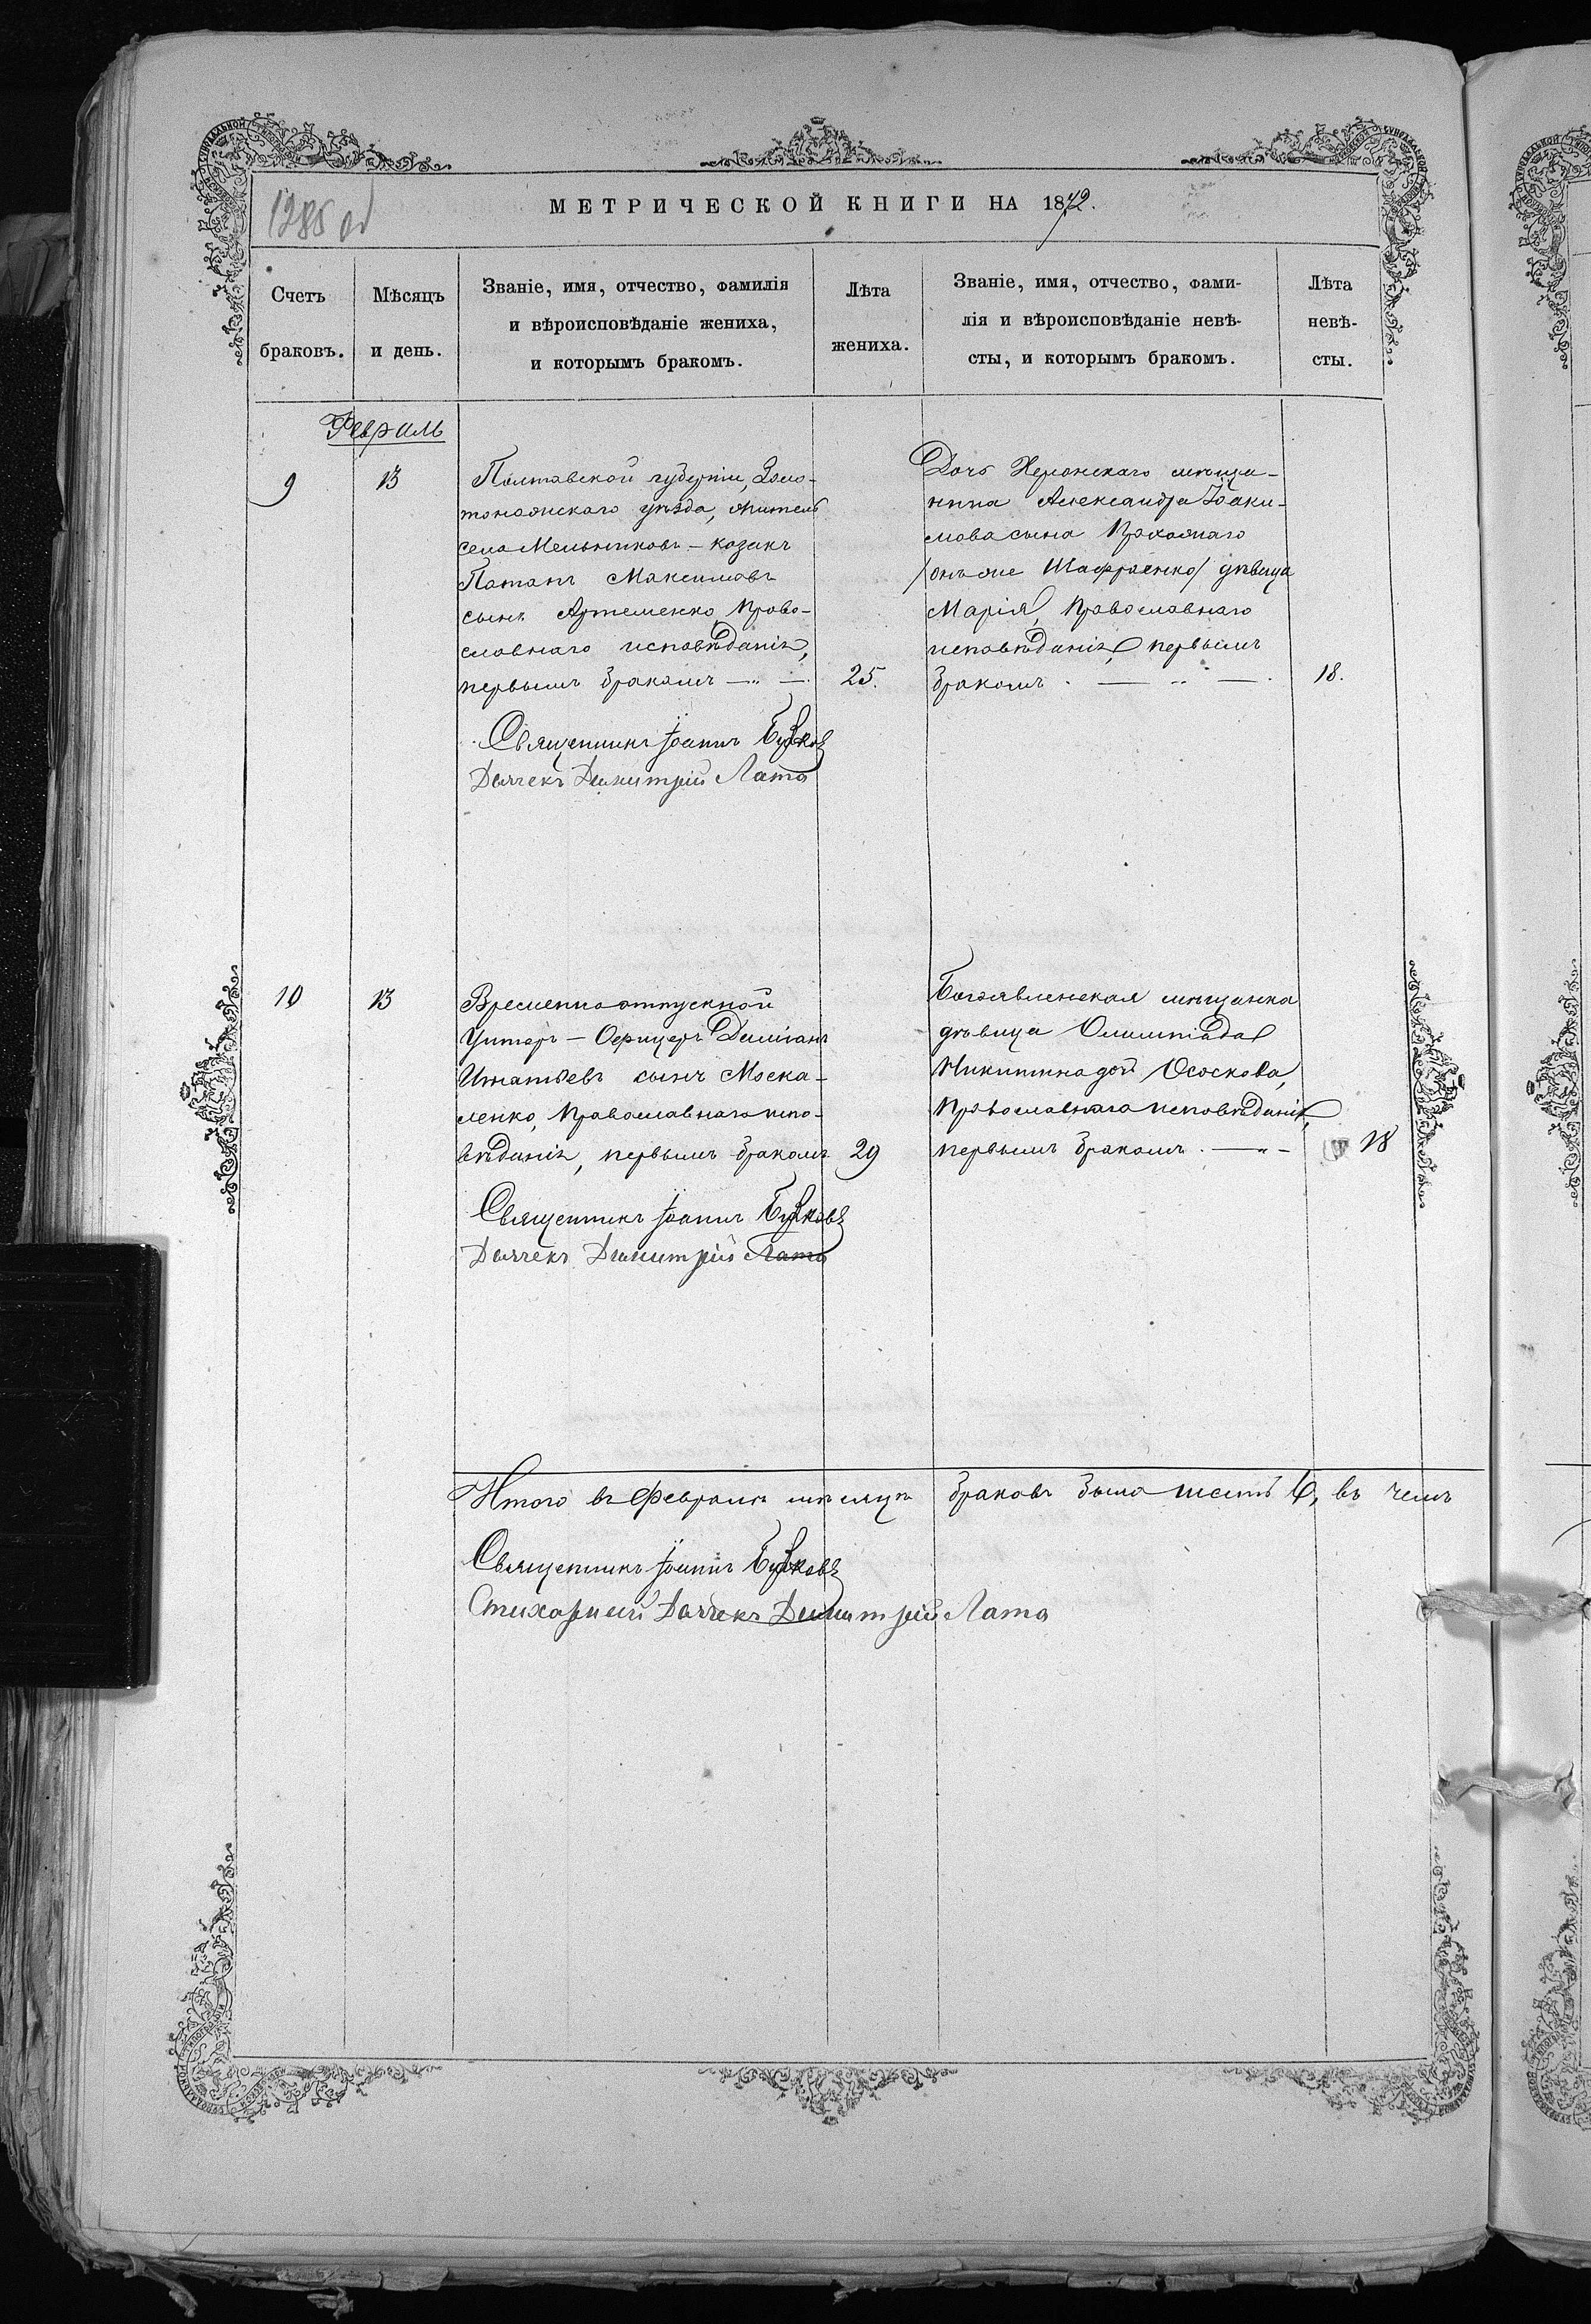 1285 об
МЕТРИЧЕСКОЙ КНИГИ НА 1872.
Счетъ браковъ.
Мѣсяцъ и день.
Званіе, имя, отчество, фамилія
и вѣроисповѣданіе жениха,
и которымъ бракомъ.
Лѣта
жениха.
Званіе, имя, отчество, фами-
лія и вѣроисповѣданіе невѣ-
сты, и которымъ бракомъ.
Лѣта
невѣ-
сты.
Февраль
9
13
Полтавской губерніи, Золо-
тоношскаго уѣзда, житель
села Мельниковъ - козакъ
Потапъ Максимовъ
сынъ Артеменко, Право-
славнаго исповѣданія,
первымъ бракомъ
25.
Дочь Херсонскаго мѣща-
нина Александра Іоаки-
мова сына
/онъ же Шафраенко/ дѣвица
Марія, Православнаго
исповѣданія, первымъ
бракомъ.
18.
Священникъ Іоаннъ
Дьячекъ Димитрій Лата
10
13
Временно отпускной
Унтеръ-Офицеръ Даміанъ
Игнатьевъ сынъ Моска-
ленко, Православнаго испо-
вѣданія, первымъ бракомъ
29
Богоявленская мѣщанка
дѣвица Олимпіада
Никитина дочь Ососкова,
Православнаго исповѣданія,
первымъ бракомъ.
18
Священникъ Іоаннъ
Дьячекъ Димитрій Лата
Итого въ Февралѣ мѣсяцѣ браковъ было шесть 6, въ чемъ
Священникъ Іоаннъ
Стихарный Дьячекъ Димитрій Лата